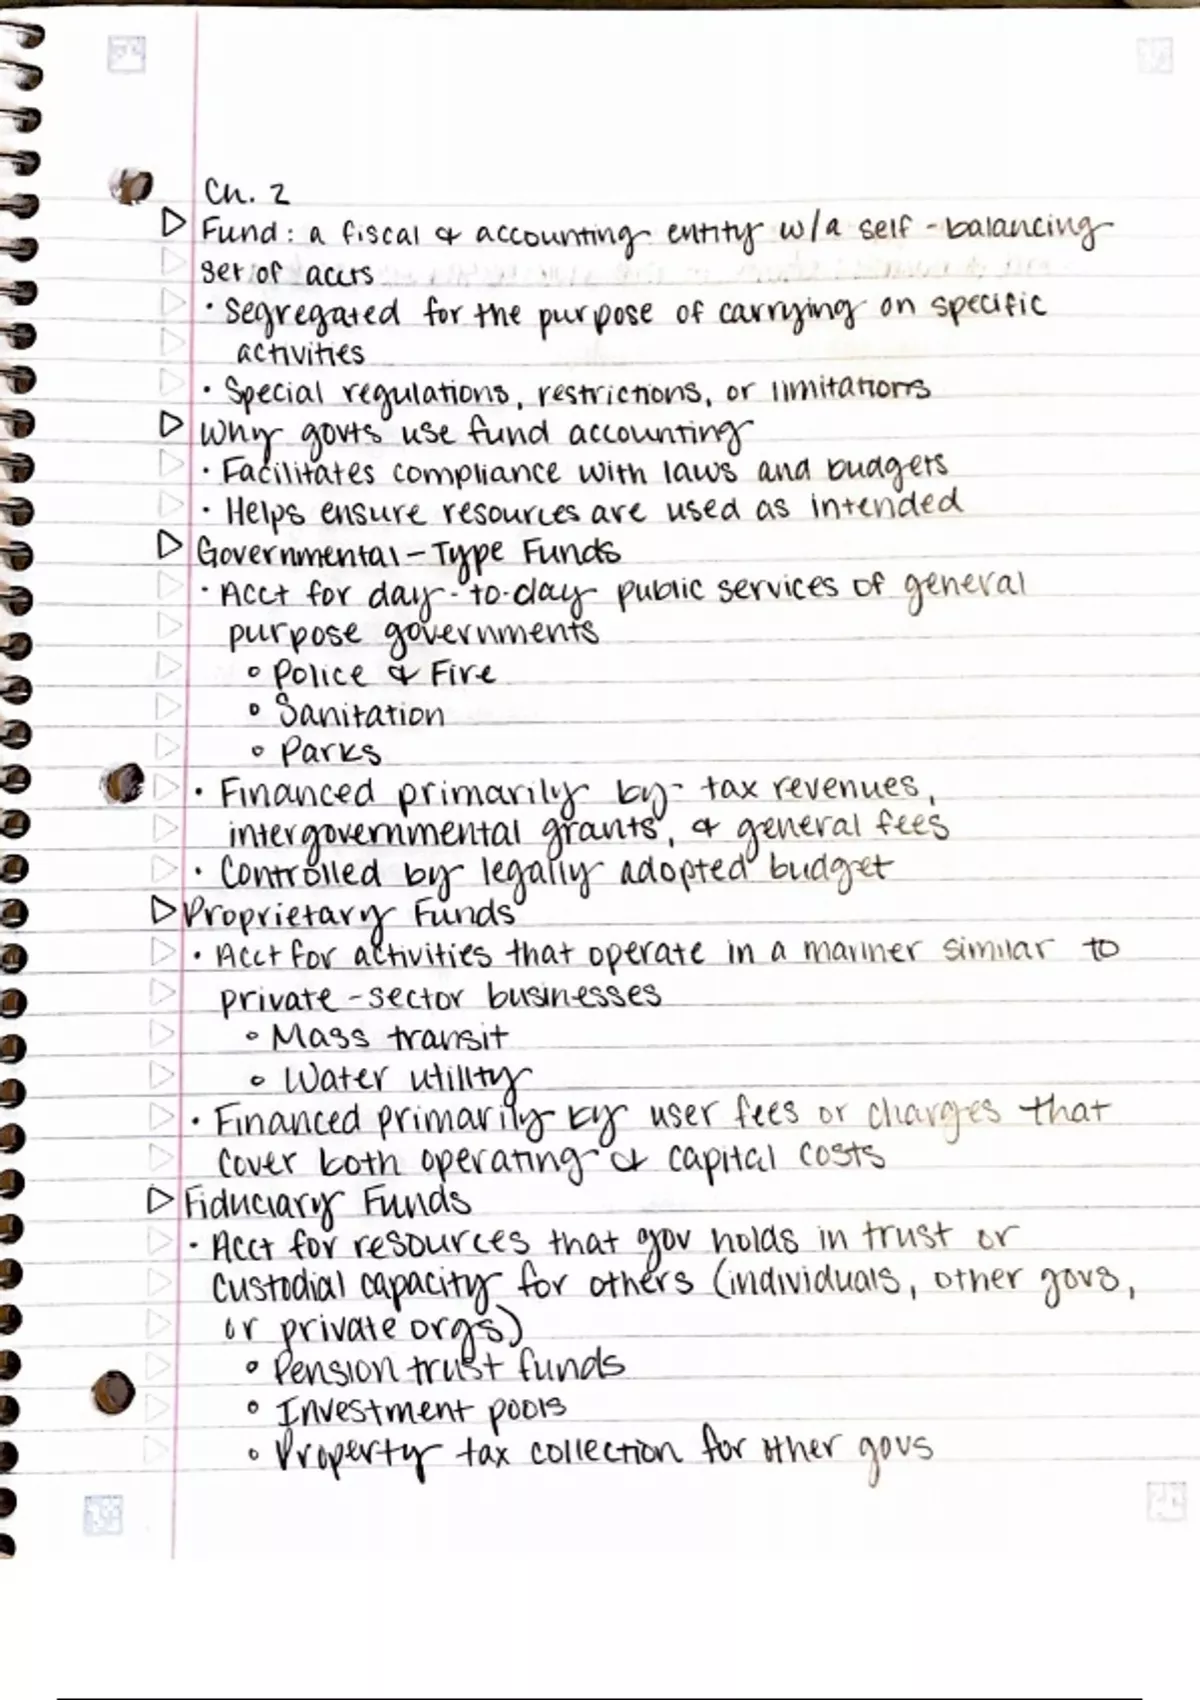 Ch. 2
▷ Fund: a fiscal & accounting entity w/a self-balancing
set of accts
• Segregated for the purpose of carrying on specific
activities
• Special regulations, restrictions, or limitations
▷ Why govts use fund accounting
• Facilitates compliance with laws and budgets
• Helps ensure resources are used as intended
▷ Governmental-Type Funds
• Acct for day-to-day public services of general
purpose governments
◦ Police & Fire
◦ Sanitation
◦ Parks
• Financed primarily by tax revenues,
intergovernmental grants, & general fees
• Controlled by legally adopted budget
▷ Proprietary Funds
• Acct for activities that operate in a manner similar to
private-sector businesses
◦ Mass transit
◦ Water utility
• Financed primarily by user fees or charges that
cover both operating & capital costs
▷ Fiduciary Funds
• Acct for resources that gov holds in trust or
custodial capacity for others (individuals, other govs,
or private orgs)
◦ Pension trust funds
◦ Investment pools
◦ Property tax collection for other govs